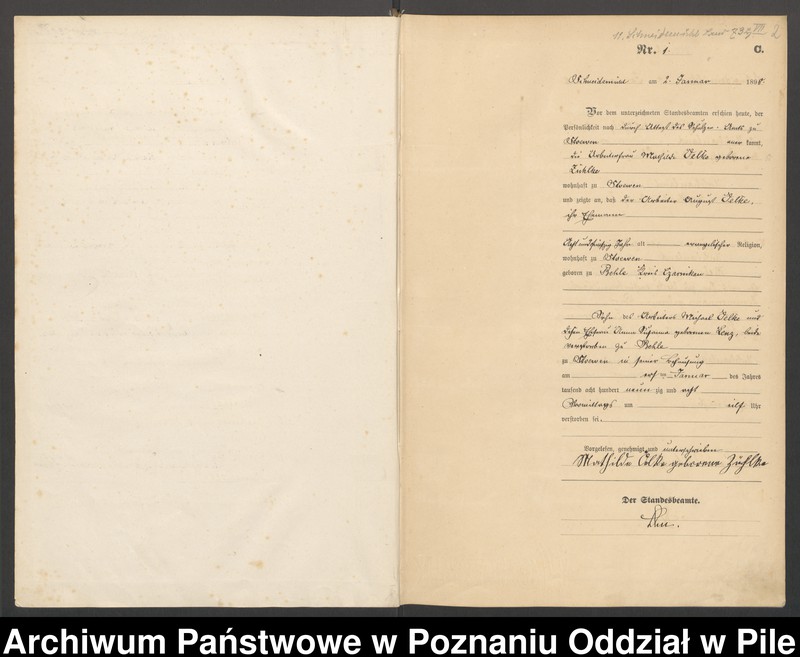 11. Schneidemühl Land 2
Nr. 1 C.
Schneidemühl am 2. Januar 1898
Vor dem unterzeichneten Standesbeamten erschien heute, der
Persönlichkeit nach durch Attest des Schulzen-Amts zu
Stoewen aner kannt,
die Arbeiterfrau Mathilde Oelke geborene
Zühlke
wohnhaft zu Stoewen
und zeigte an, daß der Arbeiter August Oelke,
ihr Ehemann
Achtundfünfzig Jahr alt evangelischer Religion,
wohnhaft zu Stoewen
geboren zu Behle Kreis Czarnikau
Sohn des Arbeiters Michael Oelke und
dessen Ehefrau Anna Susanna geborenen Lenz, beide
verstorben zu Behle
zu Stoewen in seiner Behausung
am Januar des Jahres
tausend acht hundert neun zig und acht
Vormittags um elf Uhr
verstorben sei.
Vorgelesen, genehmigt und unterschrieben
Mathilde Oelke geborene Zühlke
Der Standesbeamte.
Archiwum Państwowe w Poznaniu Oddział w Pile